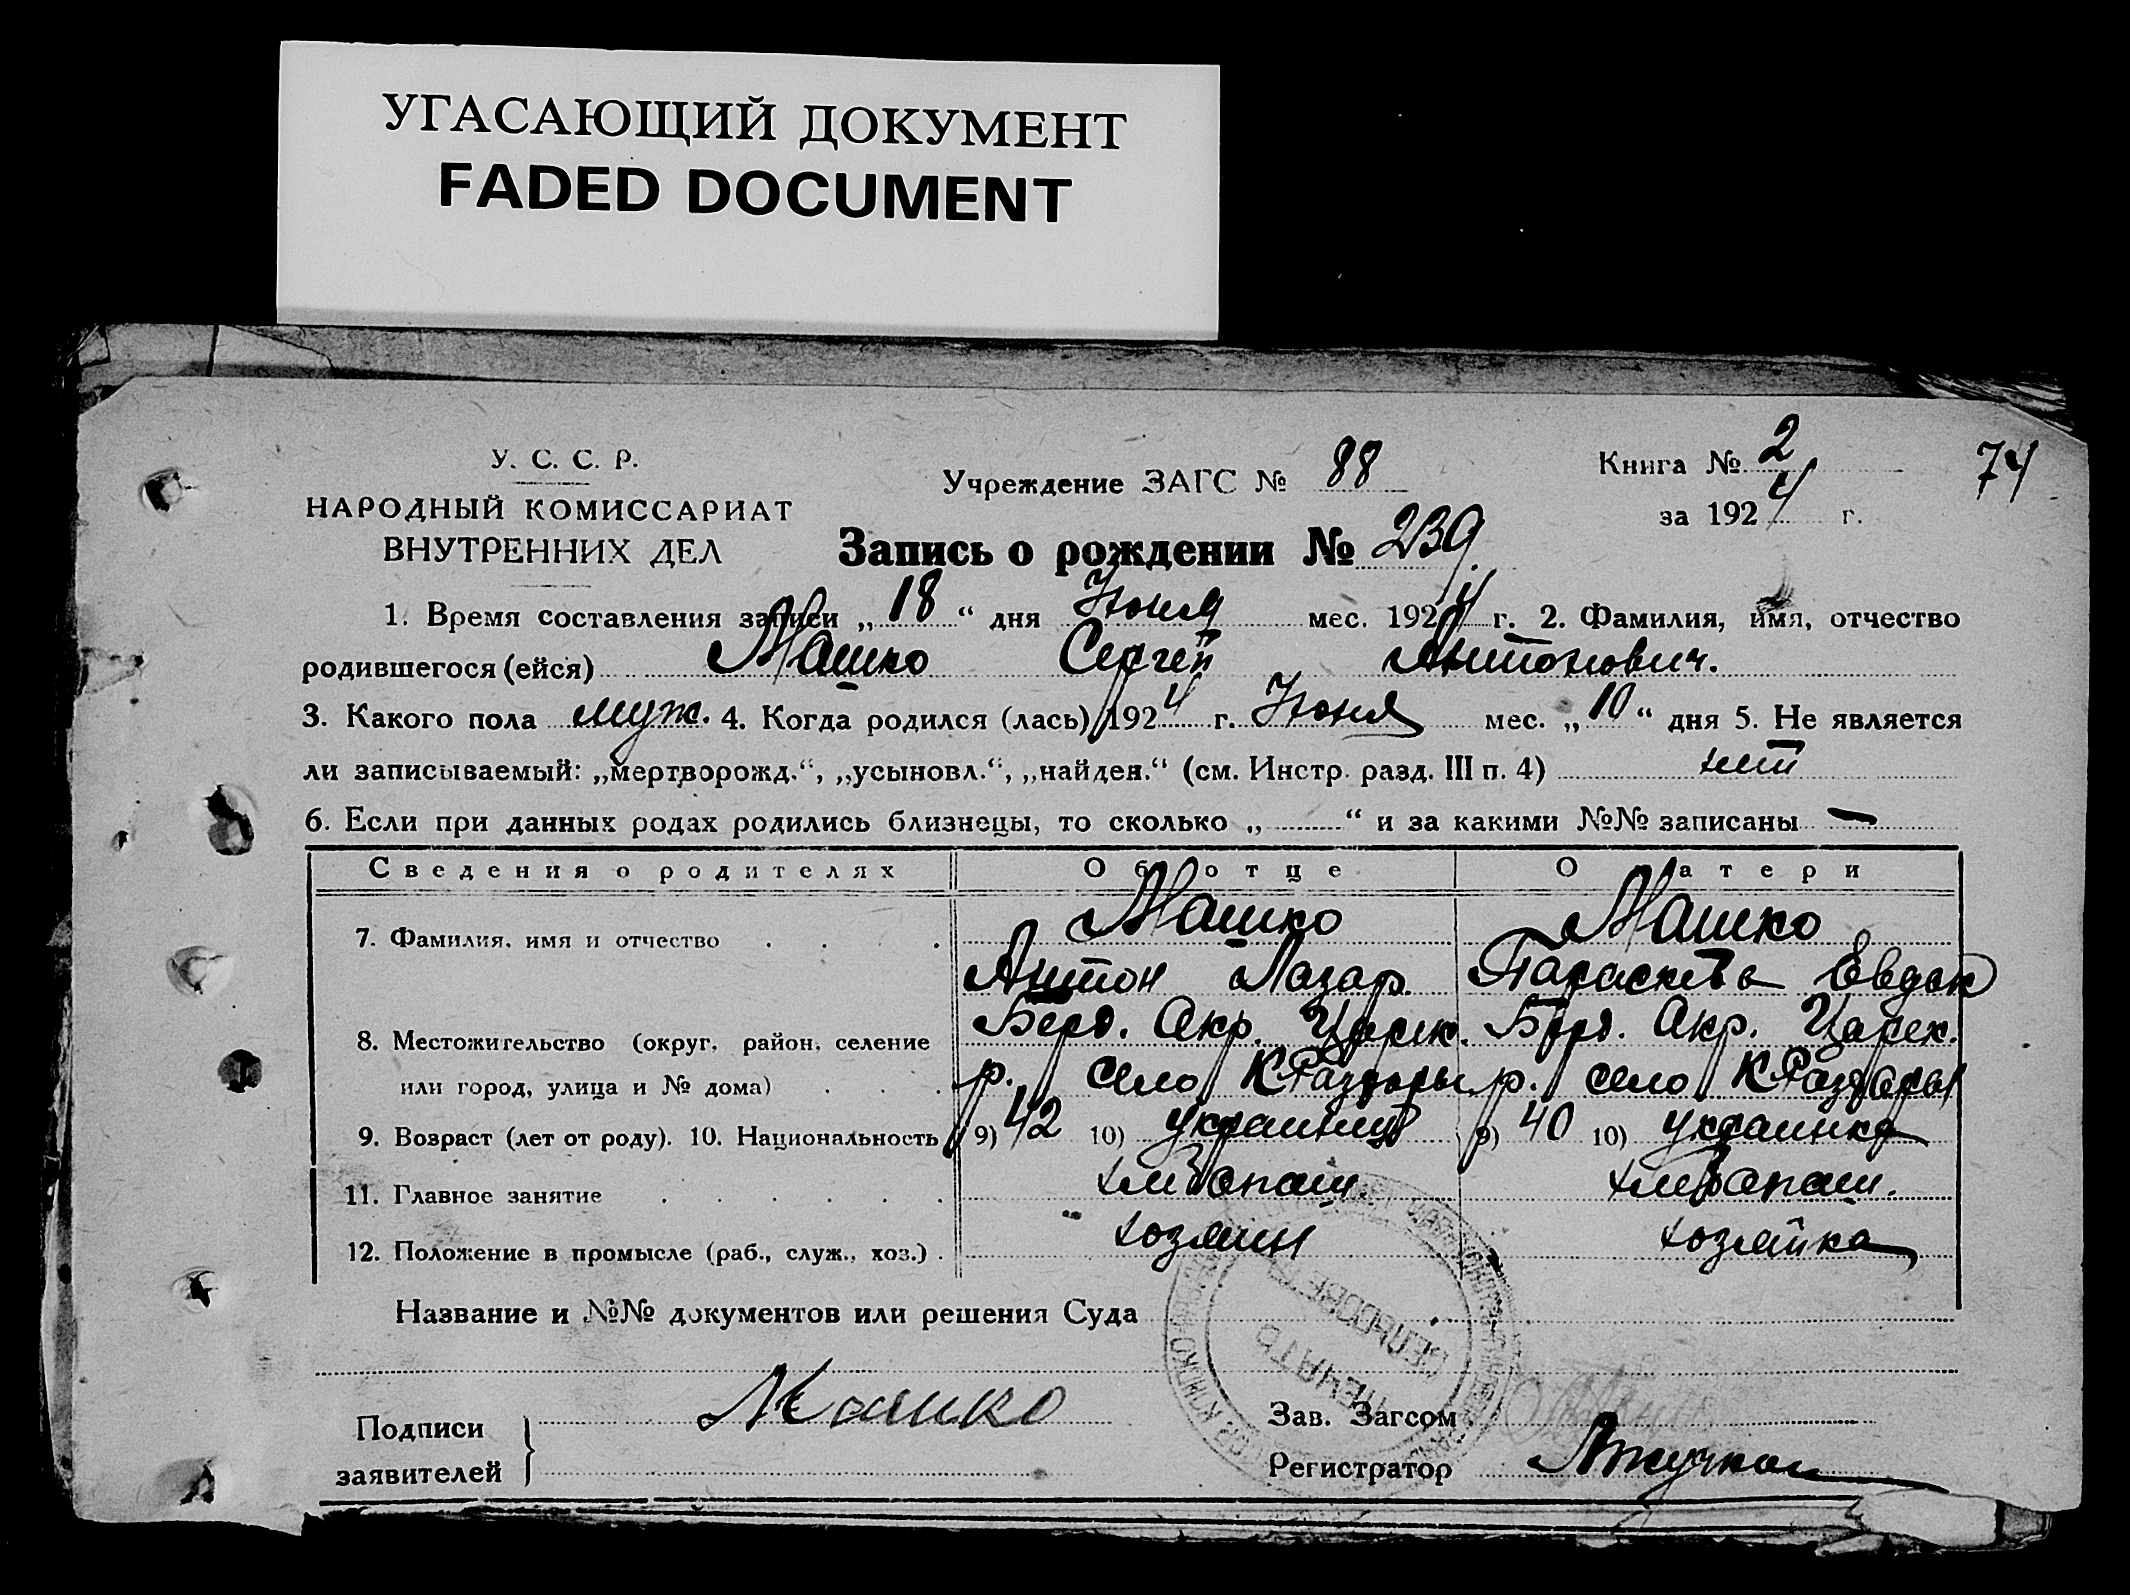 УГАСАЮЩИЙ ДОКУМЕНТ
FADED DOCUMENT
У. С. С. Р.
НАРОДНЫЙ КОМИССАРИАТ
ВНУТРЕННИХ ДЕЛ
Учреждение ЗАГС № 88
Книга № 2
за 1924 г.
74
Запись о рождении № 239
1. Время составления записи „18“ дня Июня мес. 1924 г. 2. Фамилия, имя, отчество
родившегося (ейся) Машко Сергей Антонович.
3. Какого пола муж. 4. Когда родился (лась) 1924 г. Июня мес. „10“ дня 5. Не является
ли записываемый: „мертворожд.“, „усыновл.“, „найден.“ (см. Инстр. разд. III п. 4) нет
6. Если при данных родах родились близнецы, то сколько „ “ и за какими №№ записаны —
Сведения о родителях Об отце О матери
7. Фамилия, имя и отчество Машко Машко
Антон Лазар. Параскева Евдок
8. Местожительство (округ, район, селение Берд. Окр. Царек. Берд. Окр. Царек.
или город, улица и № дома) р. село К Раздоры р. село К Раздоры
9. Возраст (лет от роду). 10. Национальность 9) 42 10) украинец 9) 40 10) украинка
11. Главное занятие хлебопаш. хлебопаш.
12. Положение в промысле (раб., служ., хоз.) хозяин хозяйка
Название и №№ документов или решения Суда
ПЕЧАТЬ
СЕЛЬСОВЕТА
Подписи
заявителей } Машко
Зав. Загсом
Регистратор